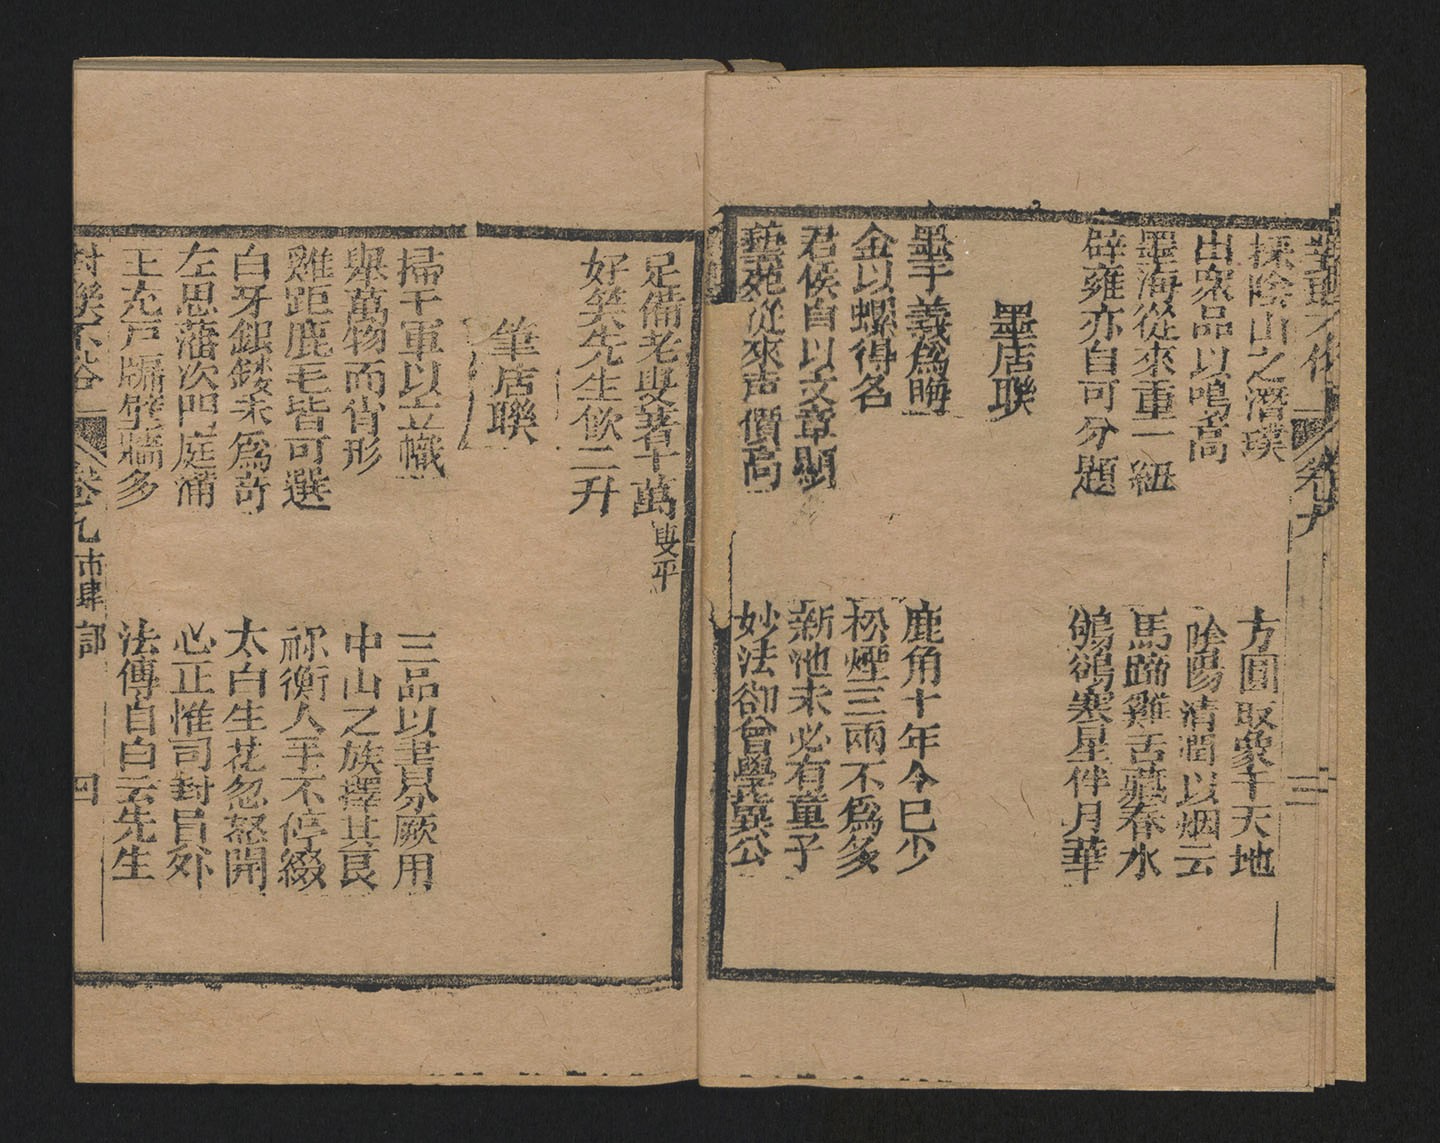 採陰山之潛璞　方圓取象于天地
出衆品以鳴高　陰陽清潤以烟云
墨海從來重一紐　馬蹄雞舌蘸春水
辟雍亦自可分題　鴝鵒寒星伴月華
墨店聯
墨于義爲晦　鹿角十年今已少
金以螺得名　松煙三兩不爲多
君侯自以文章顯　新池未必有童子
藝苑從來声價高　妙法卻曾學冀公
足備老叟著十萬叟平
好笑先生飲二升
筆店聯
掃千軍以立幟　三品以書昜厥用
舉萬物而肖形　中山之族擇其良
雞距鹿毛皆可選　祢衡人手不停綴
白牙銀鏤未爲奇　太白生花忽怒開
左思藩次門庭溷　心正惟司封員外
王充戶牖壁牆多　法傳自白云先生
對聯不俗　卷九　市肆部　四